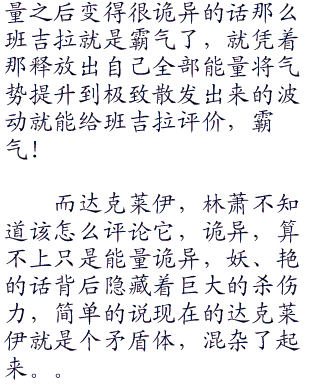 量之后变得很诡异的话那么
班吉拉就是霸气了，就凭着
那释放出自己全部能量将气
势提升到极致散发出来的波
动就能给班吉拉评价，霸
气！
而达克莱伊，林萧不知
道该怎么评论它，诡异，算
不上只是能量诡异，妖、艳
的话背后隐藏着巨大的杀伤
力，简单的说现在的达克莱
伊就是个矛盾体，混杂了起
来。。